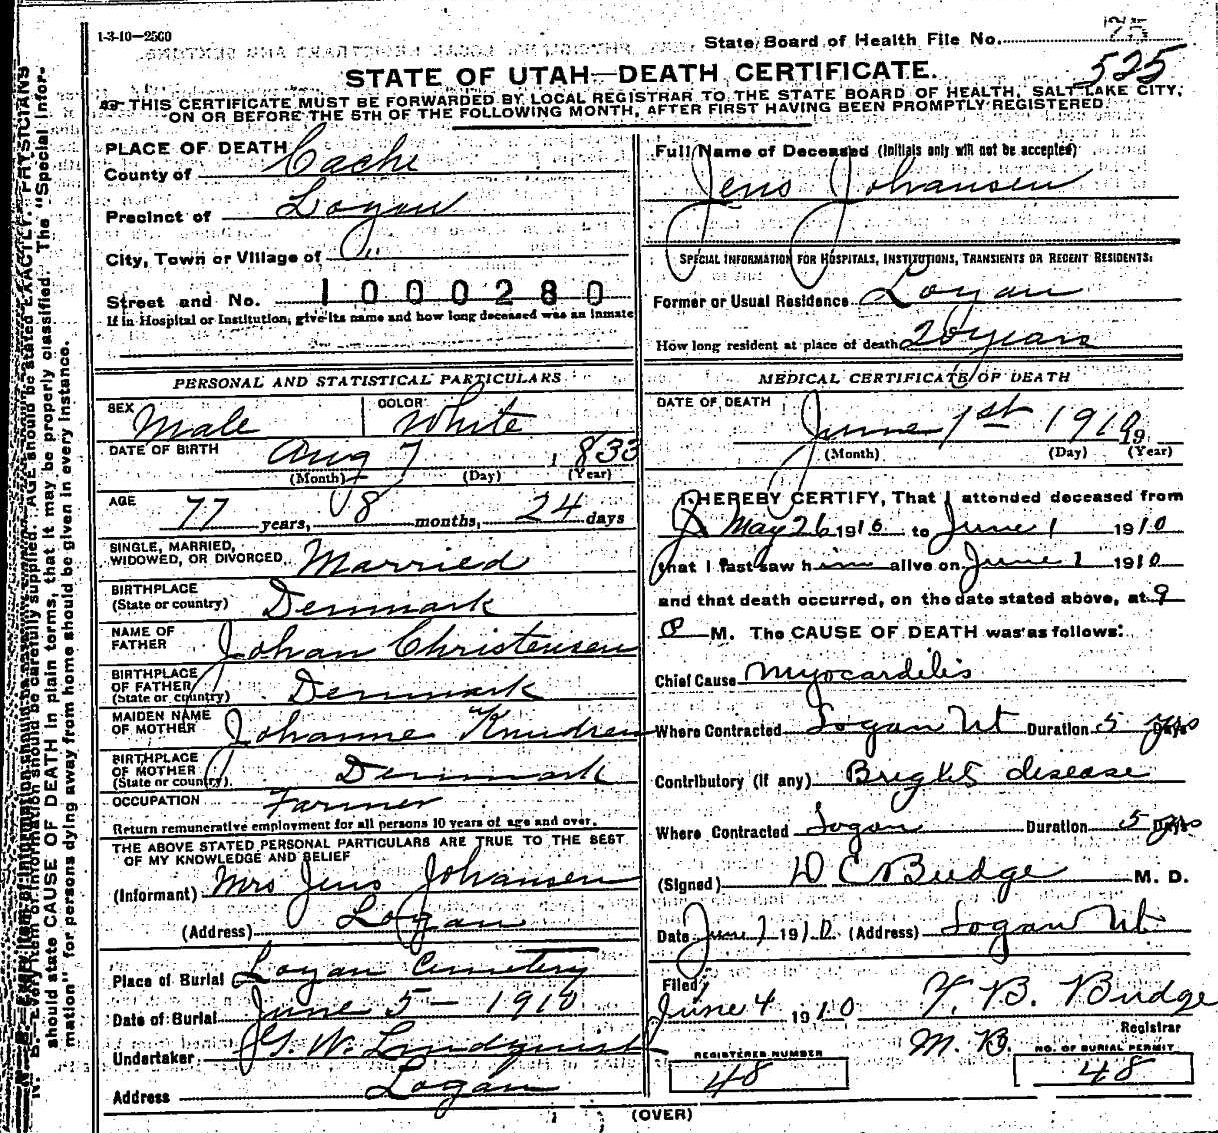 1-3-10-2500
State Board of Health File No. 75
525
STATE OF UTAH—DEATH CERTIFICATE.
THIS CERTIFICATE MUST BE FORWARDED BY LOCAL REGISTRAR TO THE STATE BOARD OF HEALTH, SALT LAKE CITY,
ON OR BEFORE THE 5TH OF THE FOLLOWING MONTH, AFTER FIRST HAVING BEEN PROMPTLY REGISTERED.
PLACE OF DEATH
County of Cache
Precinct of Logan
City, Town or Village of "
Street and No. 1000280
If in Hospital or Institution, give its name and how long deceased was an inmate
PERSONAL AND STATISTICAL PARTICULARS
SEX Male COLOR White
DATE OF BIRTH Aug 7 1833
(Month) (Day) (Year)
AGE 77 years, 8 months, 24 days
SINGLE, MARRIED,
WIDOWED, OR DIVORCED Married
BIRTHPLACE
(State or country) Denmark
NAME OF
FATHER Johan Christensen
BIRTHPLACE
OF FATHER
(State or country) Denmark
MAIDEN NAME
OF MOTHER Johanne Knudsen
BIRTHPLACE
OF MOTHER
(State or country) Denmark
OCCUPATION Farmer
Return remunerative employment for all persons 10 years of age and over.
THE ABOVE STATED PERSONAL PARTICULARS ARE TRUE TO THE BEST
OF MY KNOWLEDGE AND BELIEF
(Informant) Mrs Jens Johansen
(Address) Logan
Place of Burial Logan Cemetery
Date of Burial June 5 - 1910
Undertaker G. W. Lindquist
Address Logan
Full Name of Deceased (Initials only will not be accepted)
Jens Johansen
SPECIAL INFORMATION FOR HOSPITALS, INSTITUTIONS, TRANSIENTS OR RECENT RESIDENTS:
Former or Usual Residence Logan
How long resident at place of death 20 years
MEDICAL CERTIFICATE OF DEATH
DATE OF DEATH June 1st 1910 19
(Month) (Day) (Year)
I HEREBY CERTIFY, That I attended deceased from
May 26 1910 to June 1 1910
that I last saw him alive on June 1 1910
and that death occurred, on the date stated above, at 9
P M. The CAUSE OF DEATH was as follows:
Chief Cause Myocarditis
Where Contracted Logan Ut Duration 5 yrs Days
Contributory (if any) Brights disease
Where Contracted Logan Duration 5 yrs Days
(Signed) D C Budge M. D.
Date June 1 1910 (Address) Logan Ut.
Filed
June 4 1910 T. B. Budge
Registrar
M. B.
REGISTERED NUMBER
48
NO. OF BURIAL PERMIT
48
(OVER)
N. B.—Every item of information should be carefully supplied. AGE should be stated EXACTLY. PHYSICIANS
should state CAUSE OF DEATH in plain terms, that it may be properly classified. The "Special Infor-
mation" for persons dying away from home should be given in every instance.